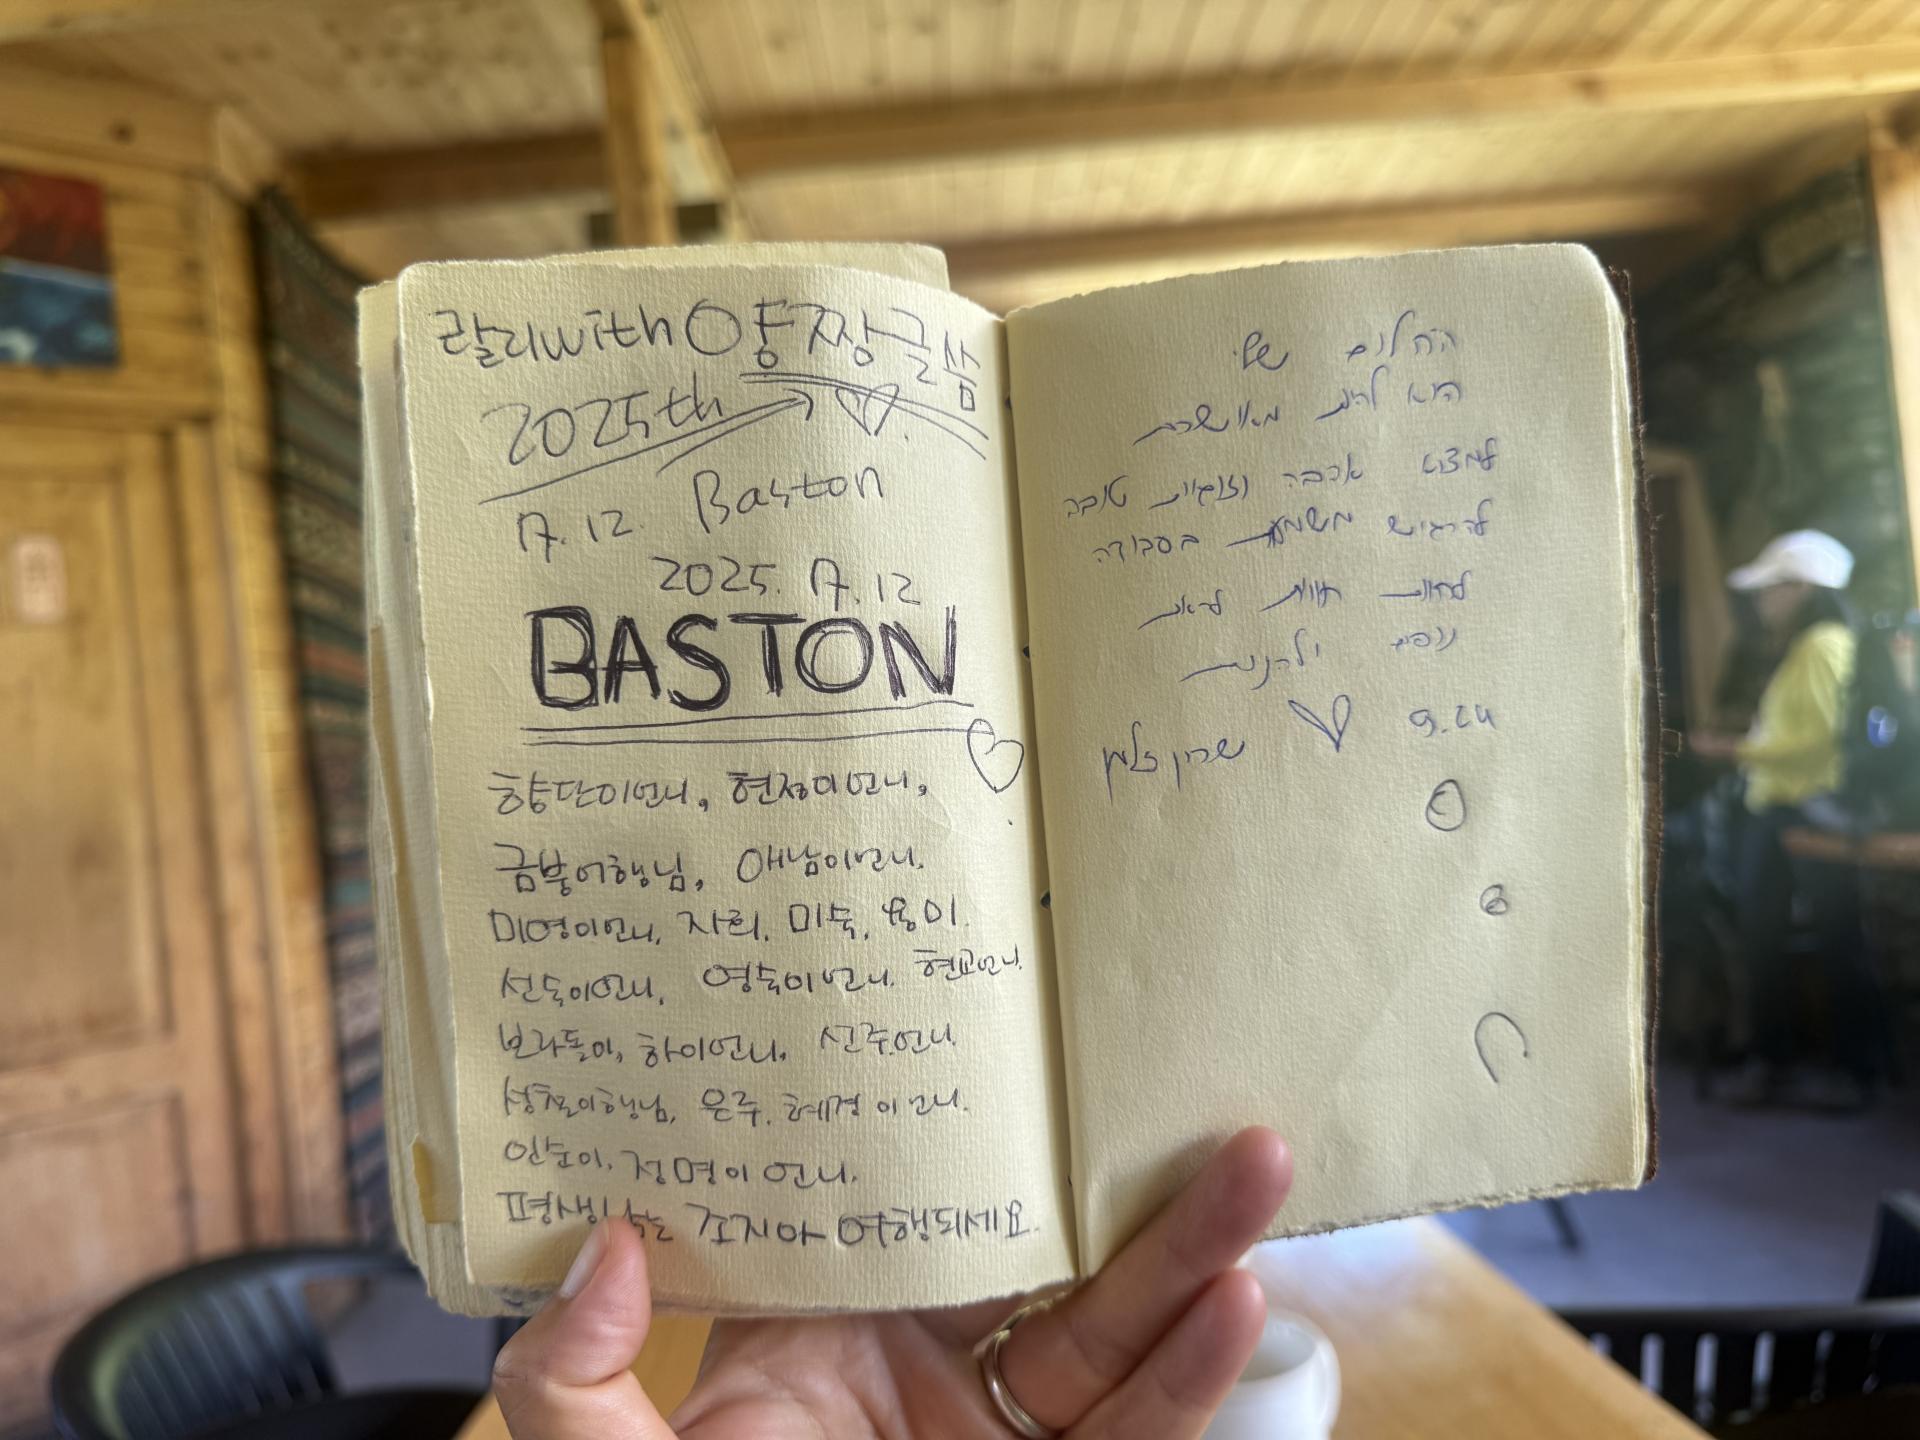 랄리with 양짱글쌈
2025th
7. 12. Baston
2025. 7. 12
BASTON
향단이언니, 현정이언니,
금붕어행님, 애남이언니.
미영이언니, 자희. 미숙, 용미.
선숙이언니, 영숙이언니. 현교언니.
보라돌이, 하이언니, 신주언니.
행님, 은주. 혜경이언니.
인순이. 정명이 언니.
평생 남는 조지아 여행되세요.
החלום שלי
הוא להיות מאושרת
למצוא אהבה וזוגיות טובה
להרגיש משמעות בעבודה
לחוות חוויות לראות
נופים וליהנות
9.24
שרון